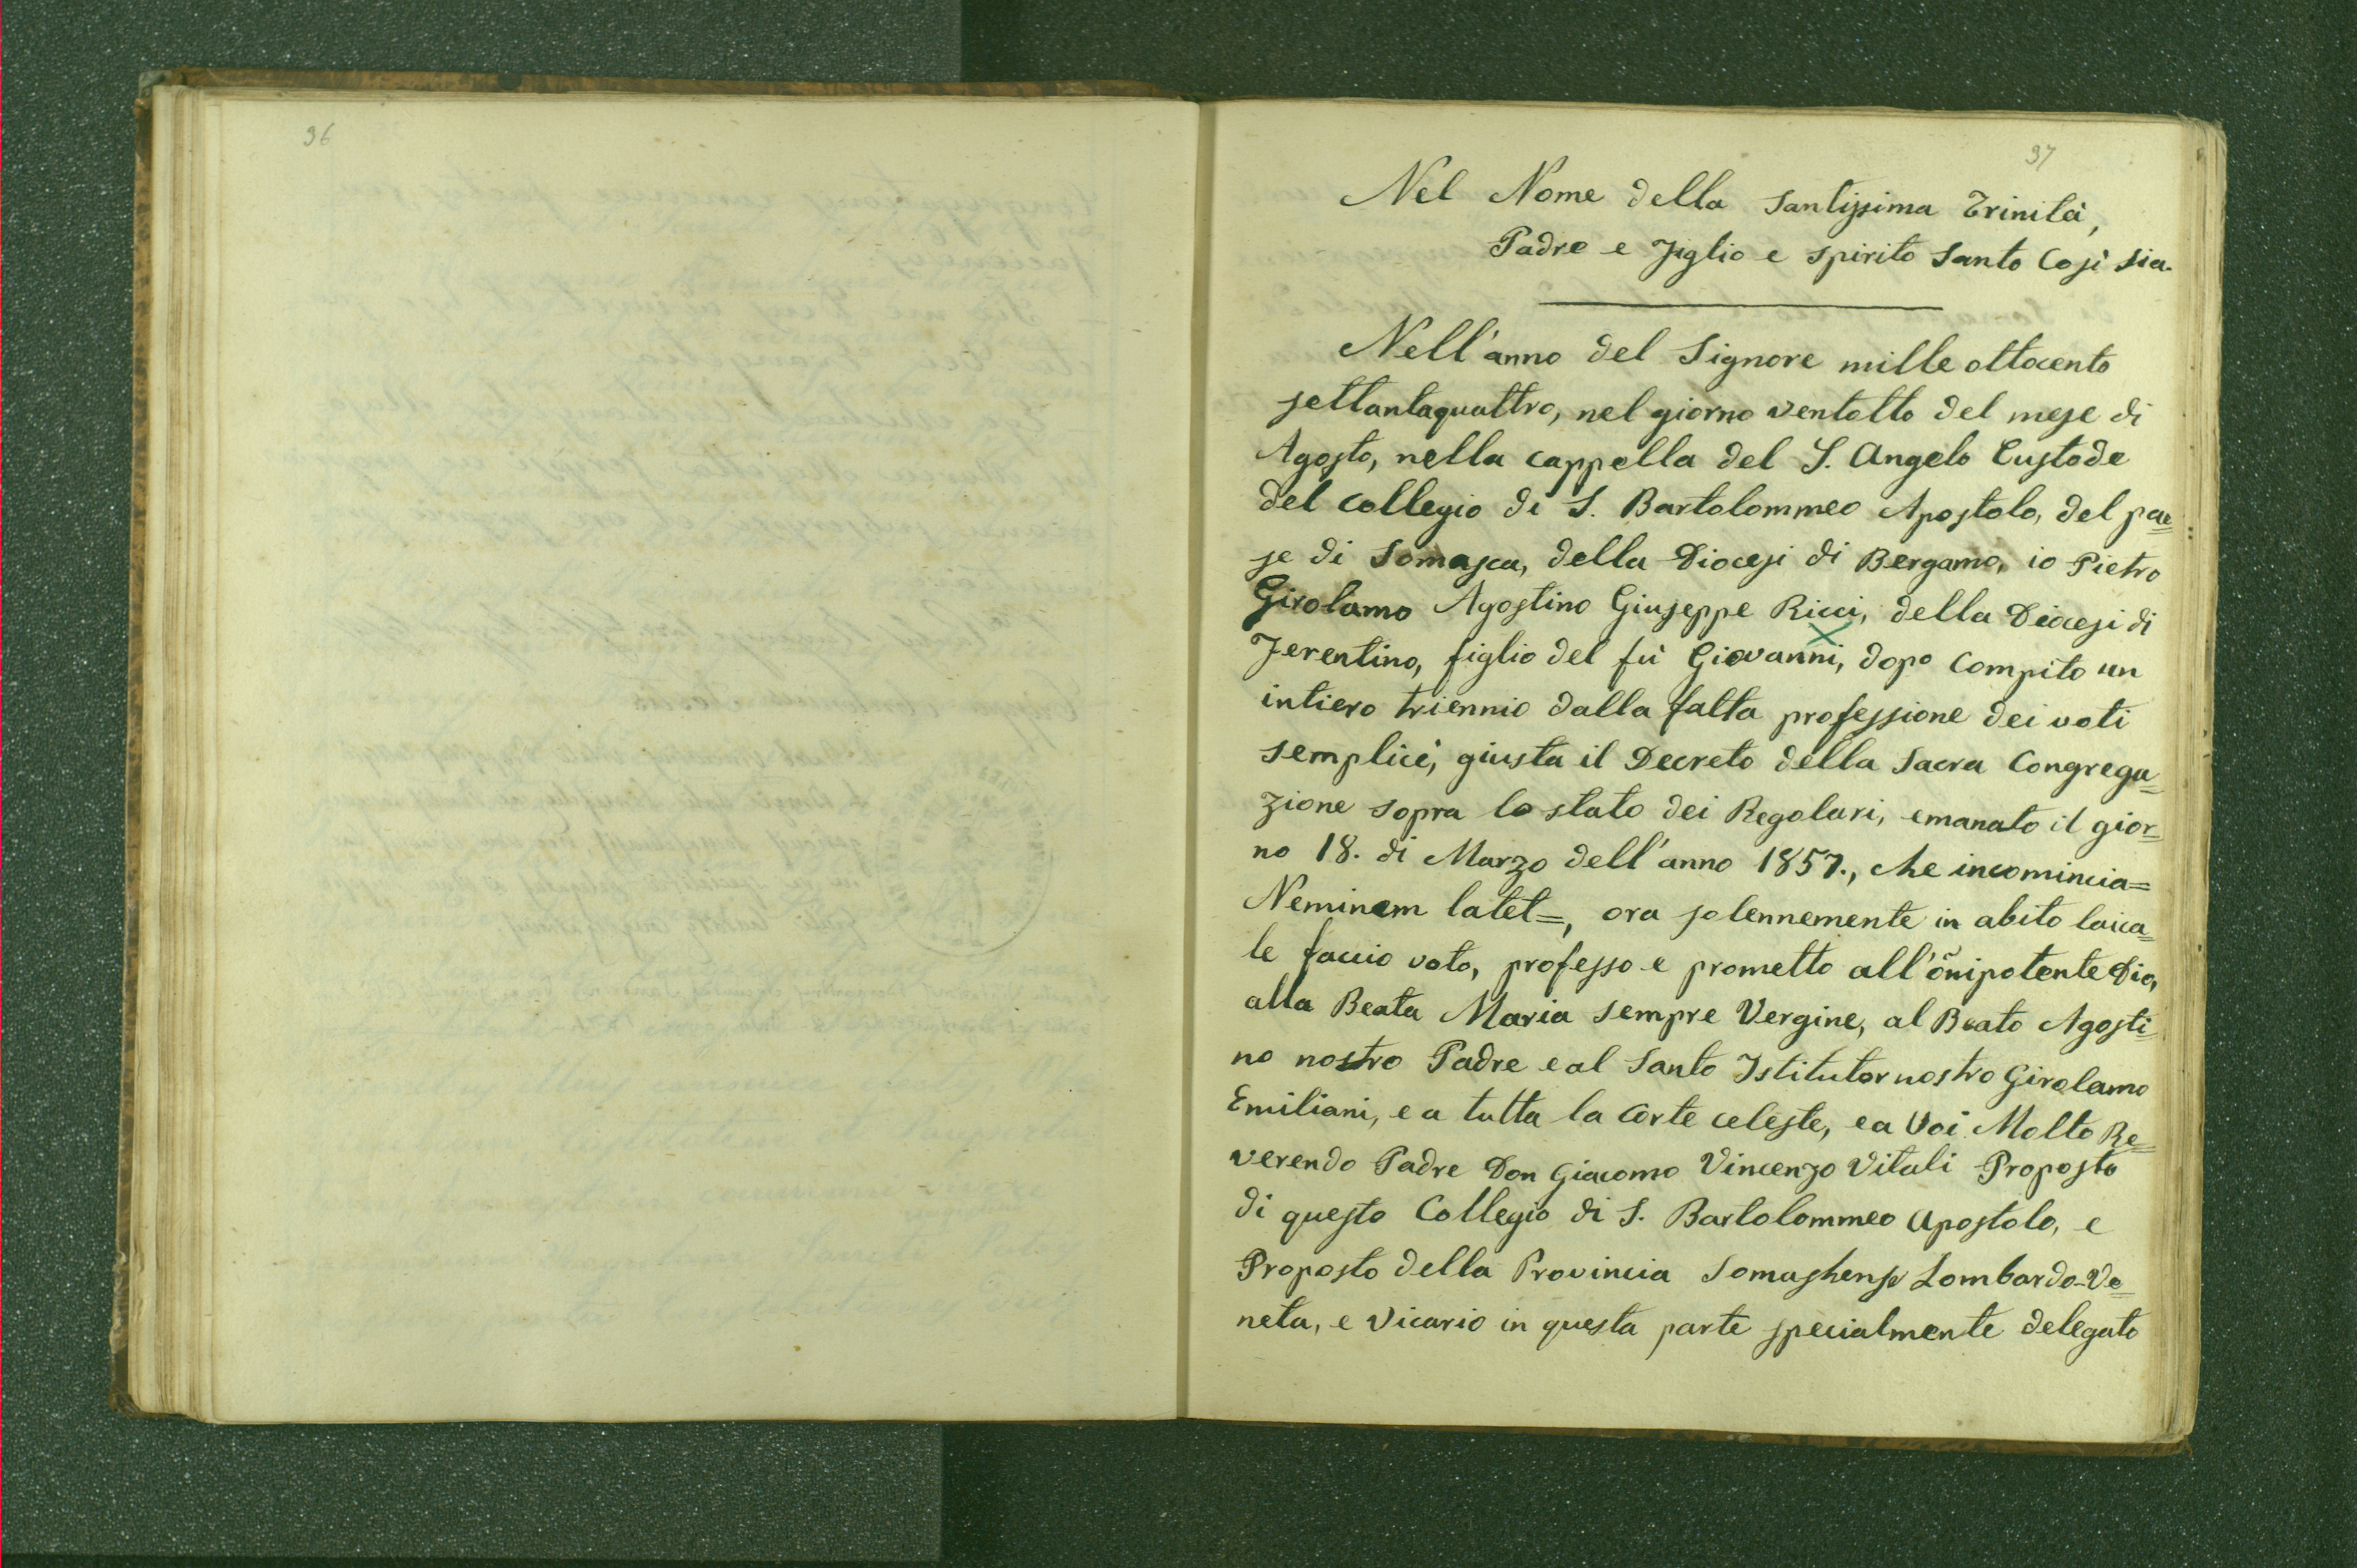 96
97
Nel Nome della Santissima Trinità,
Padre e Figlio e Spirito Santo Così sia.
Nell'anno del Signore mille ottocento
settantaquattro, nel giorno ventotto del mese di
Agosto, nella cappella del S. Angelo Custode
del collegio di S. Bartolommeo Apostolo, del pae=
se di Somasca, della Diocesi di Bergamo, io Pietro
Girolamo Agostino Giuseppe Ricci, della Diocesi di
Ferentino, figlio del fù Giovanni, dopo compito un
intiero triennio dalla fatta professione dei voti
semplici, giusta il Decreto della Sacra Congrega=
zione sopra lo stato dei Regolari, emanato il gior=
no 18. di Marzo dell'anno 1857., che incomincia=
Neminem latet=, ora solennemente in abito laica=
le faccio voto, professo e prometto all'õnipotente Dio,
alla Beata Maria sempre Vergine, al Beato Agosti=
no nostro Padre e al Santo Istitutor nostro Girolamo
Emiliani, e a tutta la Corte celeste, e a Voi Molto Re=
verendo Padre Don Giacomo Vincenzo Vitali Proposto
di questo Collegio di S. Bartolommeo Apostolo, e
Proposto della Provincia Somashense Lombardo-Ve=
neta, e Vicario in questa parte specialmente delegato